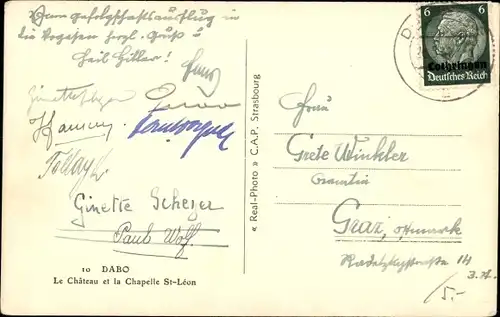 Vom Gefolgschaftsausflug in
die Vogesen herzl. Gruß u
Heil Hitler! Hans
Ginette Scheyer
Paul Wolf
10 DABO
Le Château et la Chapelle St-Léon
« Real-Photo » C.A.P. Strasbourg
6 6
Lothringen
Deutsches Reich
Frau
Grete Winkler
Beamtin
Graz, Ostmark
Radetzkystraße 14
3. St.
5.-